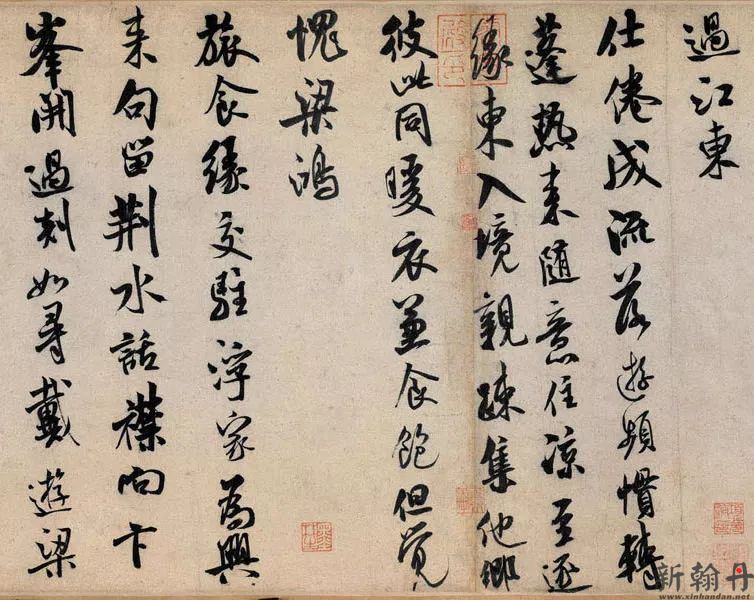 過江東
仕倦成流落遊頻慣轉
蓬熱來随意住凉至逐
緣東入境親疎集他鄉
彼此同暖衣兼食飽但覺
愧梁鴻
旅食緣交駐浮家為興
来句留荆水話襟向卞
峯開過剡如尋戴遊梁
新翰丹
www.xinhandan.net